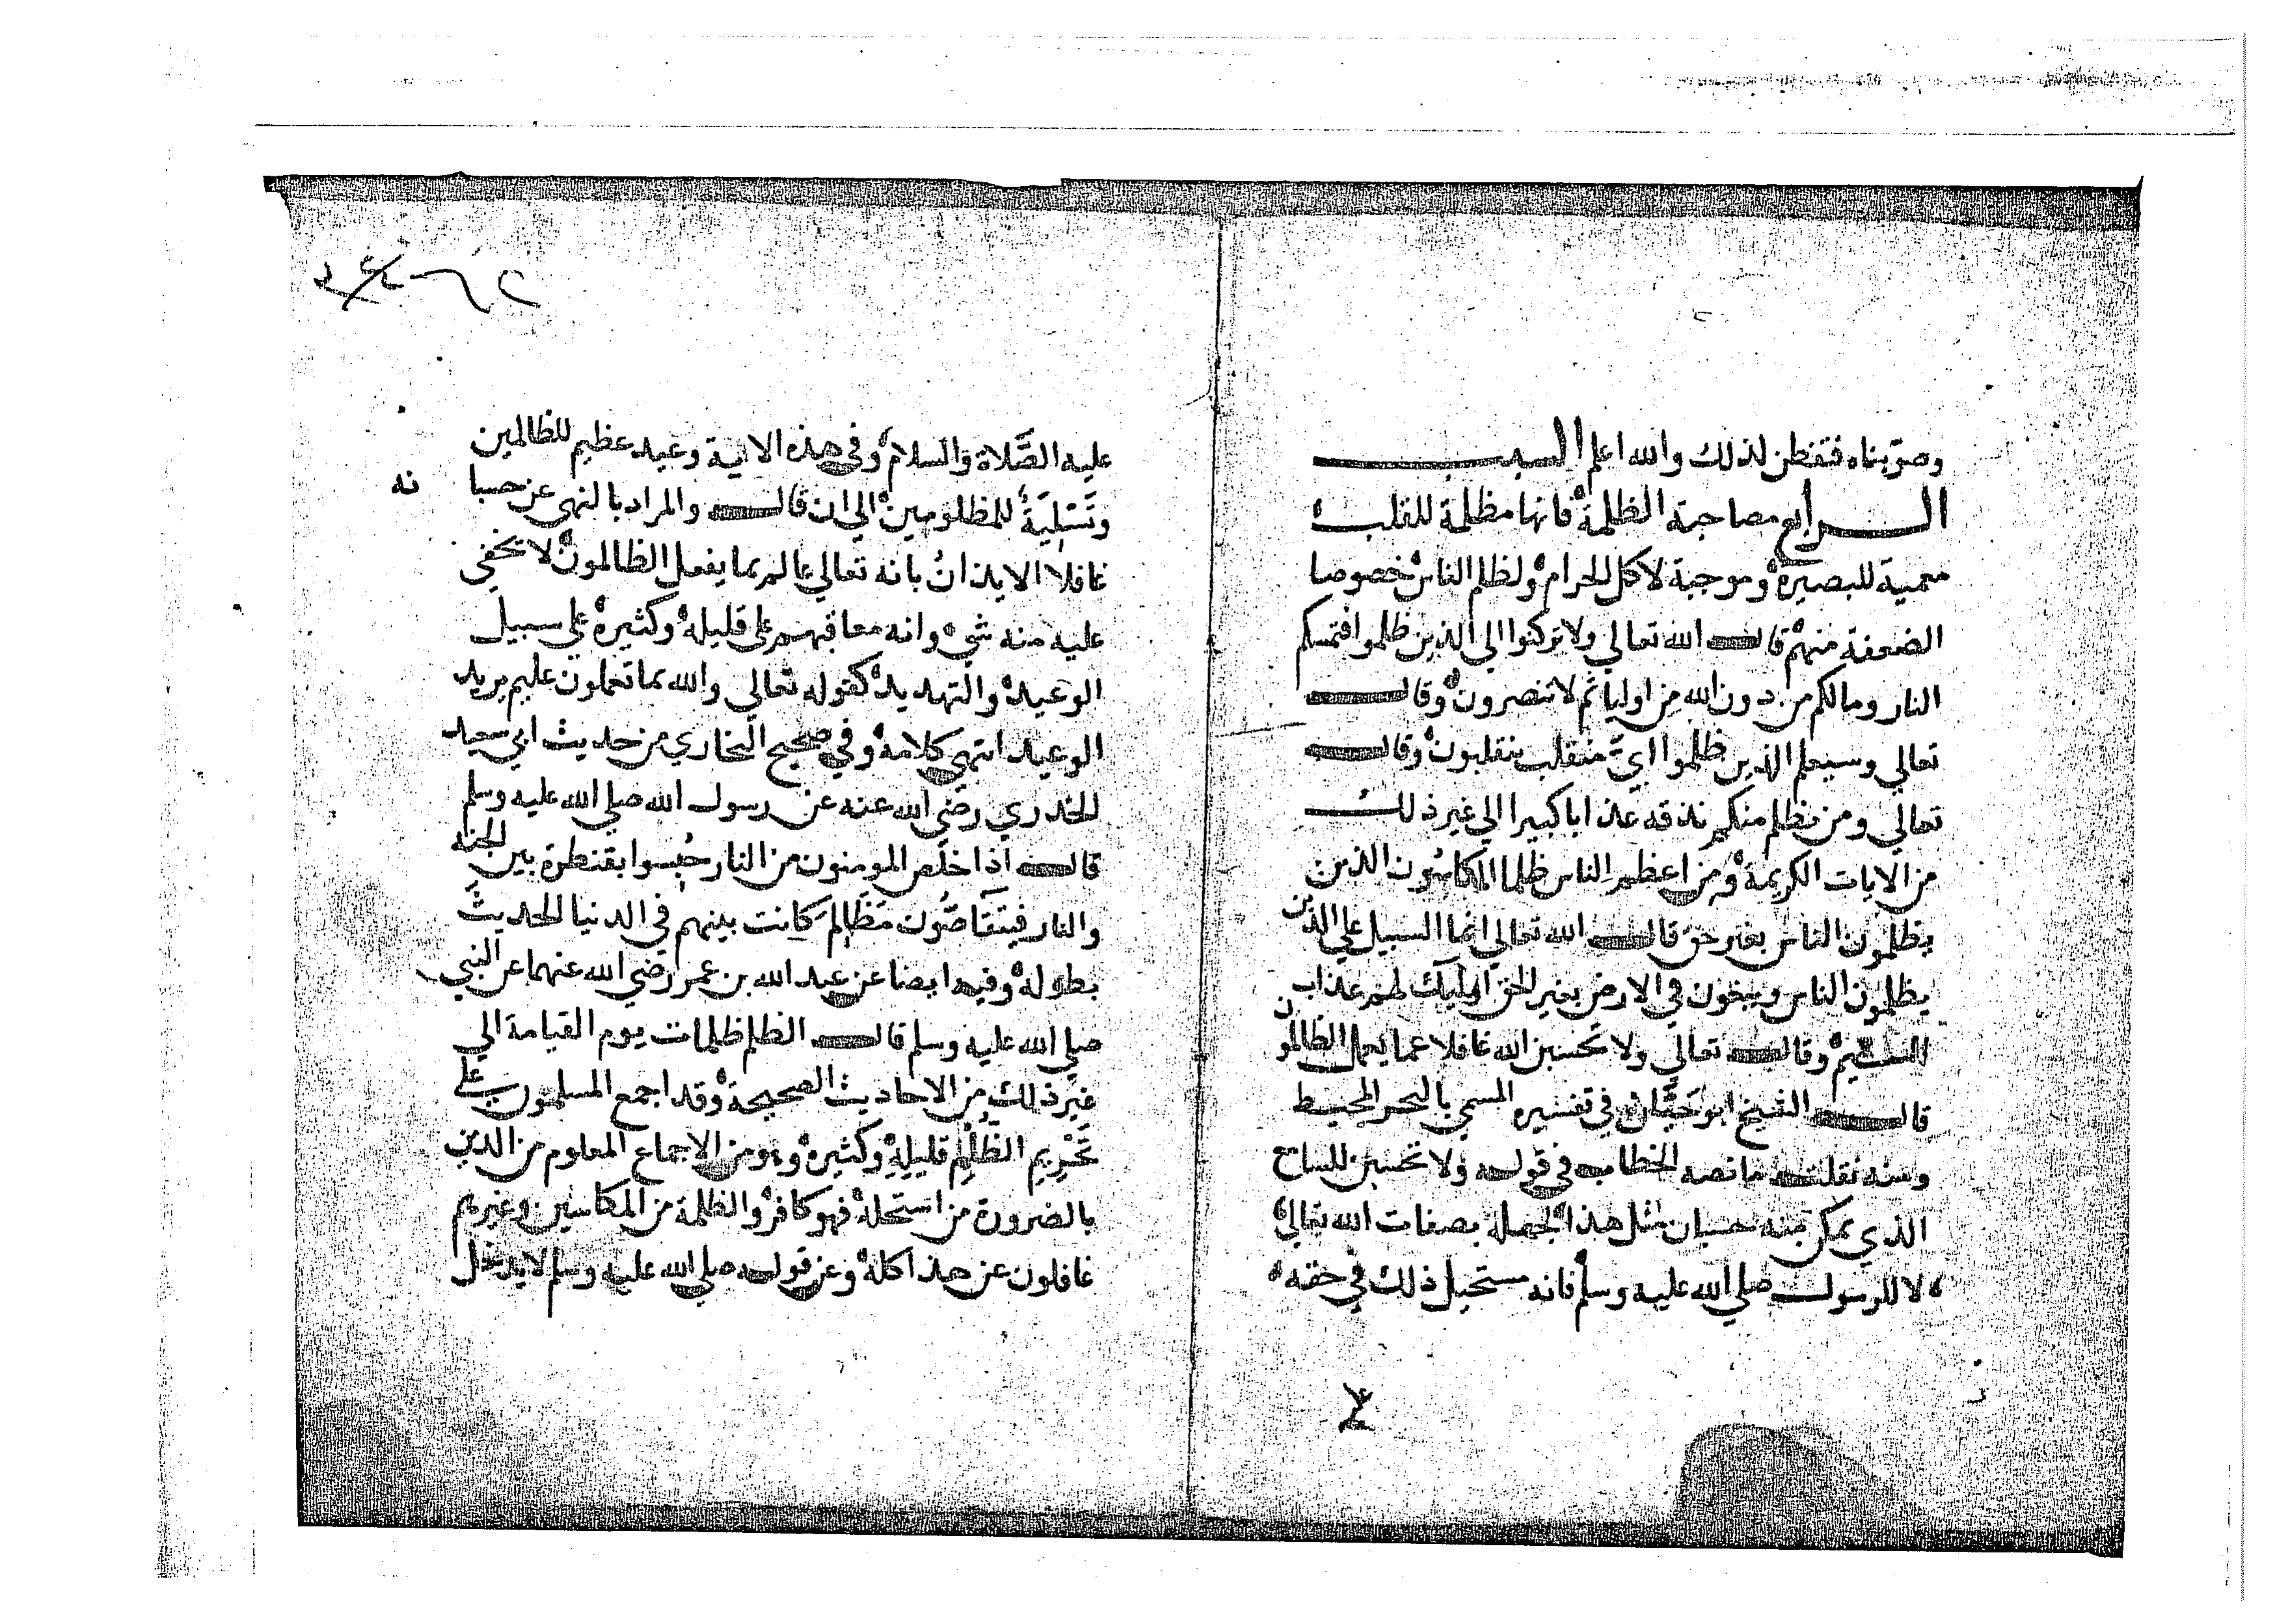 وصوبناه فتفطن لذلك والله اعلم السبب
الرابع مصاحبة الظلمة فانها مظلمة للقلب
معمية للبصيرة وموجبة لاكل الحرام ولظلم الناس خصوصا
الضعفة منهم قال الله تعالي ولا تركنوا الي الذين ظلموا فتمسكم
النار وما لكم من دون الله من اوليا ثم لا تنصرون وقال
تعالي وسيعلم الذين ظلموا ايّ منقلب ينقلبون وقال
تعالي ومن يظلم منكم نذقه عذابا كبيرا الي غير ذلك
من الايات الكريمة ومن اعظم الناس ظلما المكاسون الذين
يظلمون الناس بغير حق قال الله تعالي انما السبيل علي الذين
يظلمون الناس ويبغون في الارض بغير الحق اوليك لهم عذاب
اليم وقال تعالي ولا تحسبن الله غافلا عما يعمل الظالمون
قال الشيخ ابو حيّان في تفسيره المسمي بالبحر المحيط
ومنه نقلت ما نصه الخطاب في قوله ولا تحسبن للسامع
الذي يمكن منه حسبان مثل هذا لجهله بصفات الله تعالي
لا للرسول صلي الله عليه وسلم فانه مستحيل ذلك في حقه
عليه الصَّلاة والسلام وفي هذه الاية وعيد عظيم للظالمين
وتَسْلِيَةٌ للمظلومين الي ان قال والمراد بالنهي عن حسبانه
غافلا الايذانُ بانه تعالي عالم بما يفعل الظالمون لا تخفي
عليه منه شيء وانه معاقبهم علي قليله وكثيره علي سبيل
الوعيد والتهديد كقوله تعالي والله بما تعملون عليم يريد
الوعيد انتهي كلامه وفي صحيح البخاري من حديث ابي سعيد
الخدري رضي الله عنه عن رسول الله صلي الله عليه وسلم
قال اذا خلص المومنون من النار حُبِسوا بقنطرة بين الجنة
والنار فيتقاصُّون مَظَالِمَ كانت بينهم في الدنيا الحديث
بطوله وفيه ايضا عن عبد الله بن عمر رضي الله عنهما عن النبي
صلي الله عليه وسلم قال الظلم ظلمات يوم القيامة الي
غير ذلك من الاحاديث الصحيحة وقد اجمع المسلمون علي
تَحْرِيمِ الظُّلْمِ قليلِهِ وكثيره وهو من الاجماع المعلوم من الدين
بالضرورة من استحله فهو كافر والظلمة من المكاسين وغيرهم
غافلون عن هذا كله وعن قوله صلي الله عليه وسلم لا يدخل